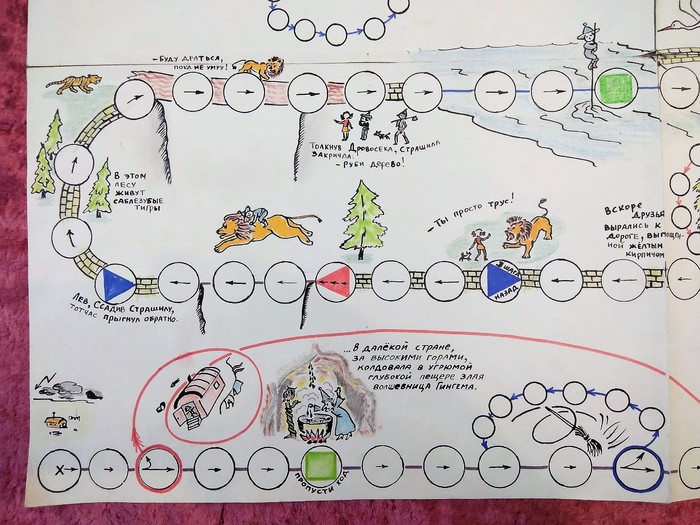 - БУДУ ДРАТЬСЯ,
ПОКА НЕ УМРУ!
ТОЛКНУВ ДРОВОСЕКА, СТРАШИЛА
ЗАКРИЧАЛ:
- РУБИ ДЕРЕВО!
В ЭТОМ
ЛЕСУ
ЖИВУТ
САБЛЕЗУБЫЕ
ТИГРЫ
- ТЫ ПРОСТО ТРУС!
ВСКОРЕ
ДРУЗЬЯ
ВЫРАЛИСЬ К
ДОРОГЕ, ВЫМОЩЕН-
НОЙ ЖЁЛТЫМ
КИРПИЧОМ
НАЗАД
ЛЕВ, ССАДИВ СТРАШИЛУ,
ТОТЧАС ПРЫГНУЛ ОБРАТНО.
...В ДАЛЁКОЙ СТРАНЕ,
ЗА ВЫСОКИМИ ГОРАМИ,
КОЛДОВАЛА В УГРЮМОЙ
ГЛУБОКОЙ ПЕЩЕРЕ ЗЛАЯ
ВОЛШЕБНИЦА ГИНГЕМА.
ПРОПУСТИ ХОД